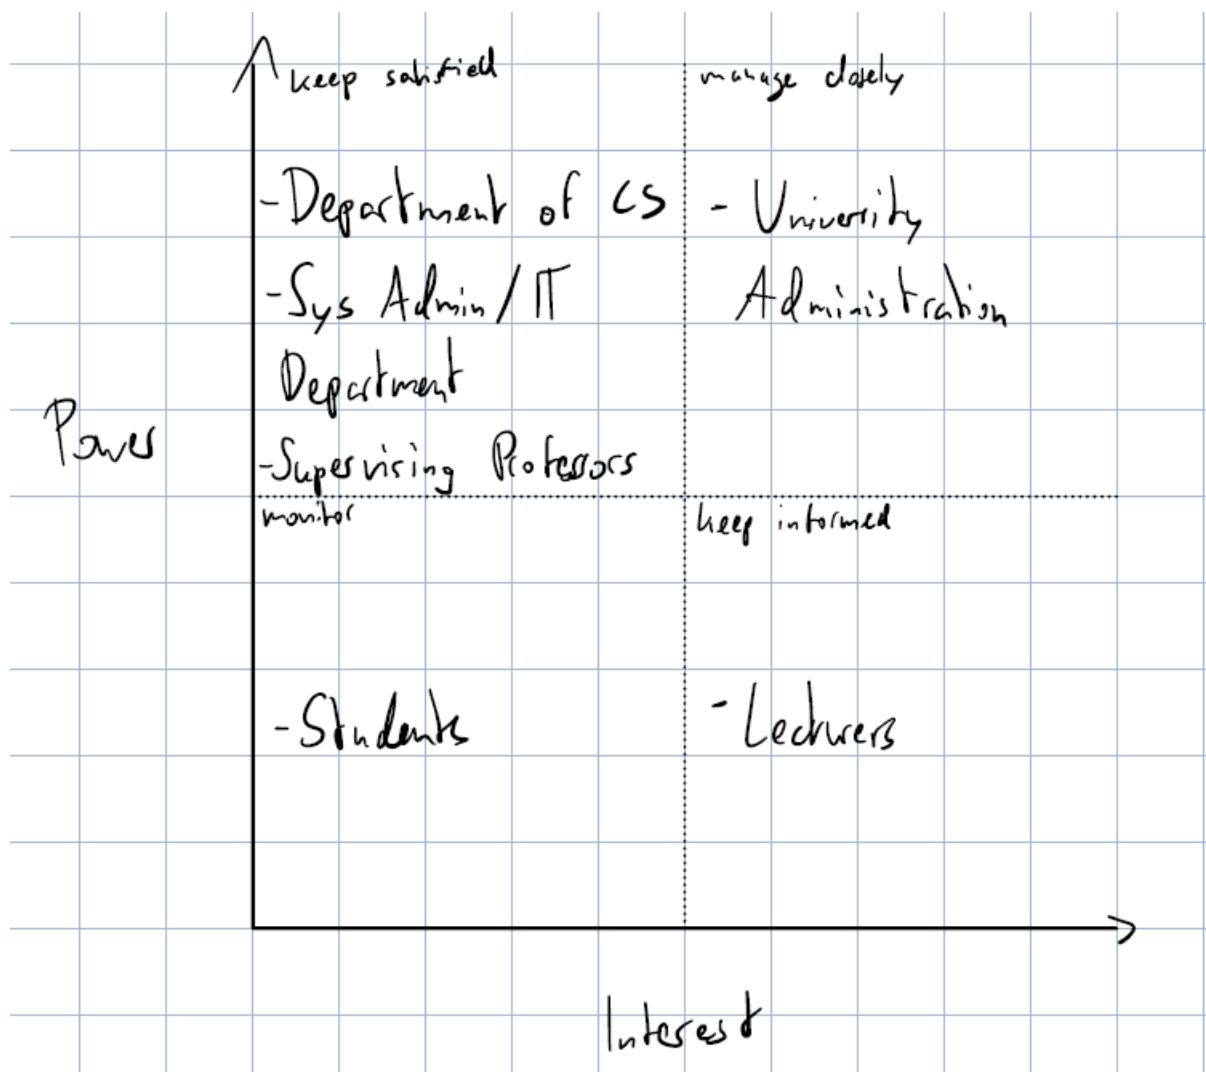 keep satisfied
manage closely
-Department of CS
-Sys Admin/IT
Department
-Supervising Professors
- University
Administration
Power
monitor
keep informed
-Students
- Lecturers
Interest